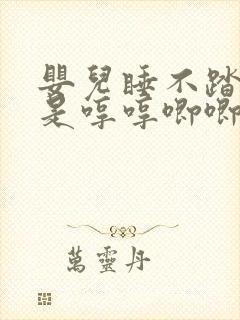 嬰兒睡不踏
是哼哼唧唧
萬靈丹